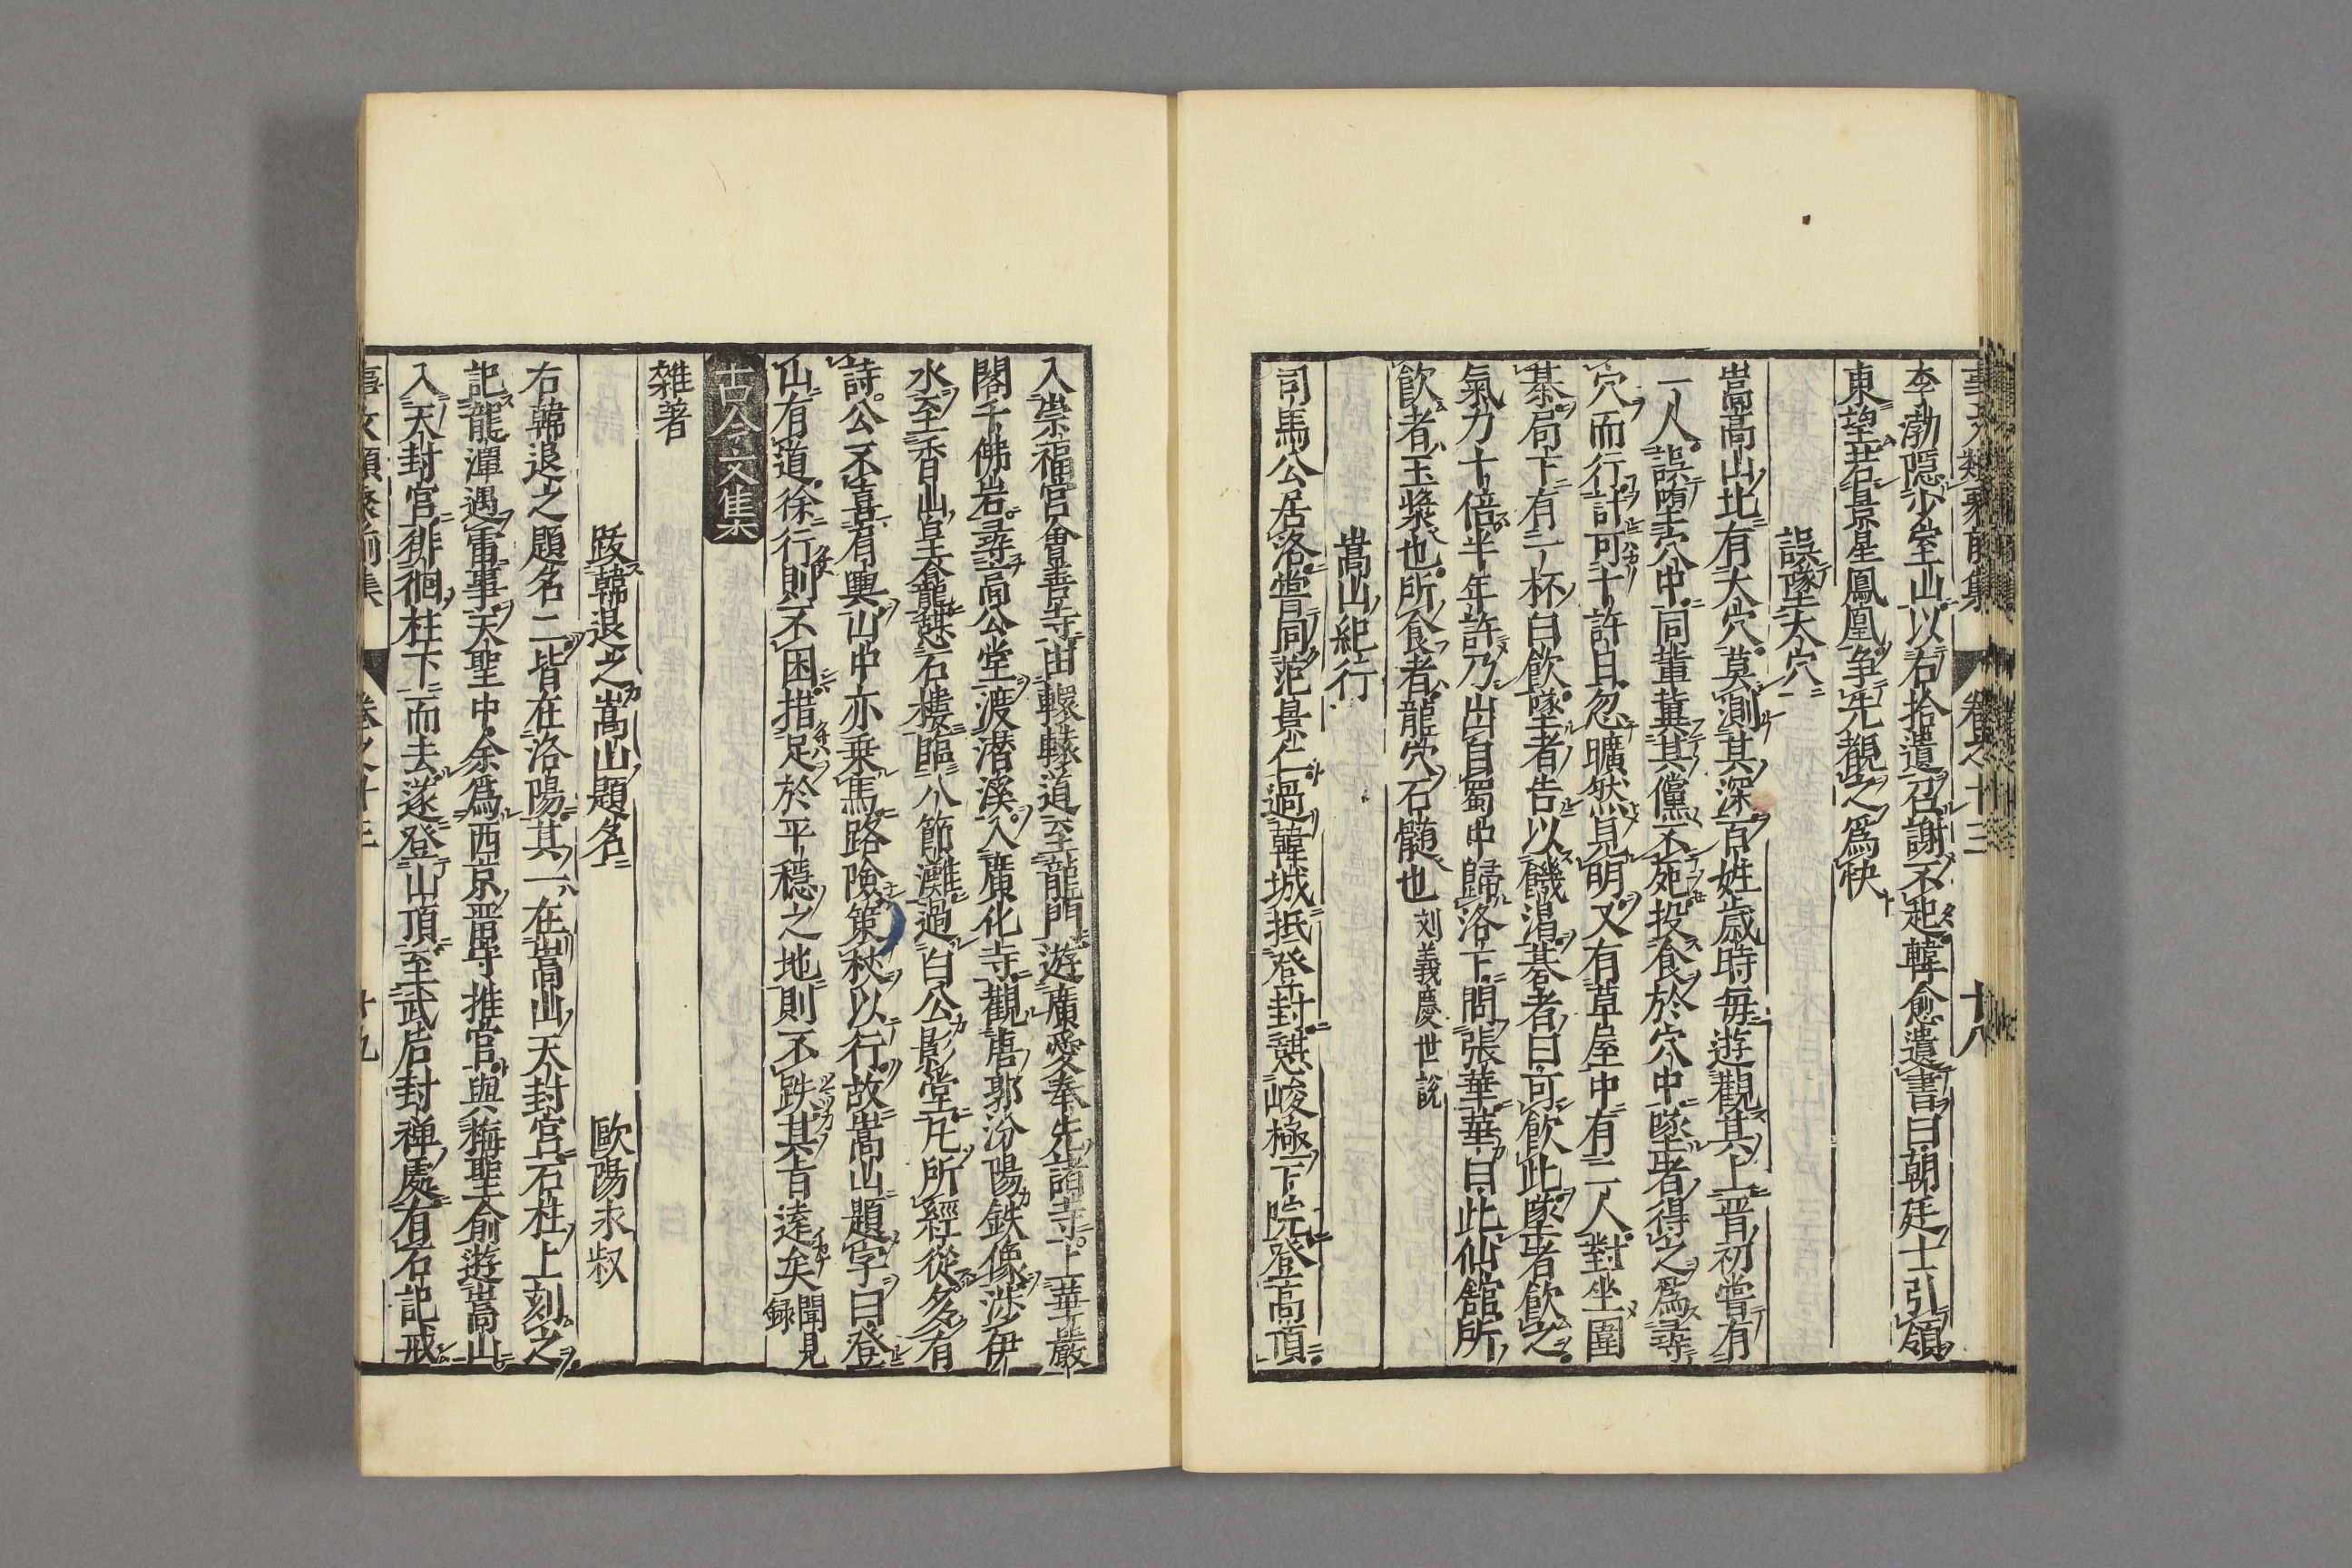 事文類聚前集 卷之十三 十八
李渤隠少室山以右拾遺召謝不起韓愈遺書曰朝廷士引領
東望若景星鳳凰争先覩之爲快
誤墜大穴
嵩高山北有大穴莫測其深百姓歳時毎遊觀其上晋初嘗有
一人誤墮穴中同輩冀其儻不死投食於穴中墜者得之爲尋
穴而行計可十許日忽曠然見明又有草屋中有二人對坐圍
棊局下有一杯白飲墜者告以饑渇碁者曰可飲此墜者飲之
氣力十倍半年許乃出自蜀中歸洛下問張華華曰此仙舘所
飲者玉漿也所食者龍穴石髄也 刘義慶世説
嵩山紀行
司馬公居洛嘗同范景仁過韓城抵登封憇峻極下院登高頂
入崇福宮會善寺由轘轅道至龍門遊廣愛奉先諸寺上華嚴
閣千佛岩尋高公堂渡潜溪入廣化寺觀唐郭汾陽鉄像渉伊
水至香山皇龕憇石樓臨八節灘過白公影堂凡所經從多有
詩公不喜肩輿山中亦乗馬路險策杖以行故嵩山題字曰登
山有道徐行則不困措足於平穩之地則不跌其旨逺矣 聞見録
古今文集
雑著
跋韓退之嵩山題名 歐陽永叔
右韓退之題名二皆在洛陽其一在嵩山天封宮石柱上刻之
記龍潭遇雷事天聖中余爲西京畱守推官與梅聖俞遊嵩山
入天封宮徘徊柱下而去遂登山頂至武后封禅處有石記戒
事文類聚前集 卷之十三 十九